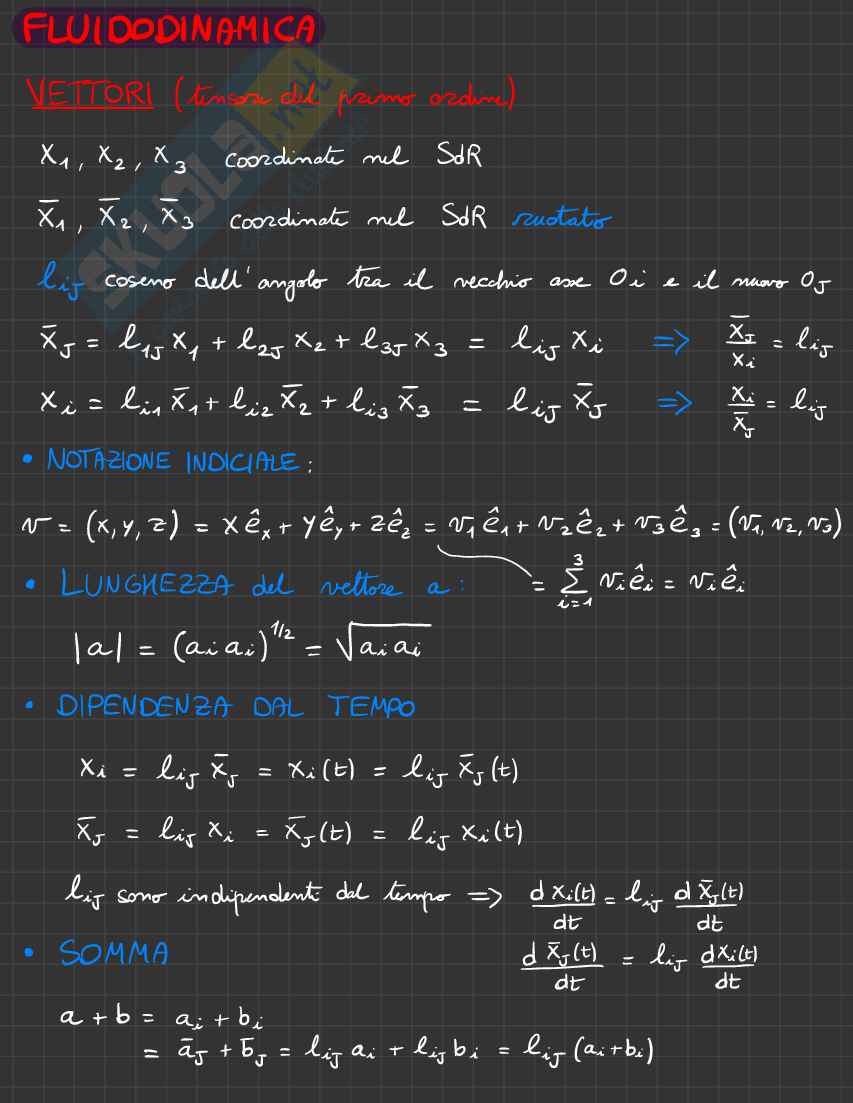 FLUIDODINAMICA
VETTORI (tensori del primo ordine)
x₁, x₂, x₃ coordinate nel SdR
x̄₁, x̄₂, x̄₃ coordinate nel SdR ruotato
lᵢⱼ coseno dell'angolo tra il vecchio asse Oi e il nuovo Oj
x̄ⱼ = l₁ⱼ x₁ + l₂ⱼ x₂ + l₃ⱼ x₃ = lᵢⱼ xᵢ => x̄ⱼ/xᵢ = lᵢⱼ
xᵢ = lᵢ₁ x̄₁ + lᵢ₂ x̄₂ + lᵢ₃ x̄₃ = lᵢⱼ x̄ⱼ => xᵢ/x̄ⱼ = lᵢⱼ
• NOTAZIONE INDICIALE:
v = (x, y, z) = x ê_x + y ê_y + z ê_z = v₁ ê₁ + v₂ ê₂ + v₃ ê₃ = (v₁, v₂, v₃)
= Σ_{i=1}^{3} vᵢ êᵢ = vᵢ êᵢ
• LUNGHEZZA del vettore a:
|a| = (aᵢ aᵢ)^{1/2} = √(aᵢ aᵢ)
• DIPENDENZA DAL TEMPO
xᵢ = lᵢⱼ x̄ⱼ = xᵢ(t) = lᵢⱼ x̄ⱼ(t)
x̄ⱼ = lᵢⱼ xᵢ = x̄ⱼ(t) = lᵢⱼ xᵢ(t)
lᵢⱼ sono indipendenti dal tempo => d xᵢ(t)/dt = lᵢⱼ d x̄ⱼ(t)/dt
d x̄ⱼ(t)/dt = lᵢⱼ dxᵢ(t)/dt
• SOMMA
a + b = aᵢ + bᵢ
= āⱼ + b̄ⱼ = lᵢⱼ aᵢ + lᵢⱼ bᵢ = lᵢⱼ (aᵢ + bᵢ)
SKUOLA.net